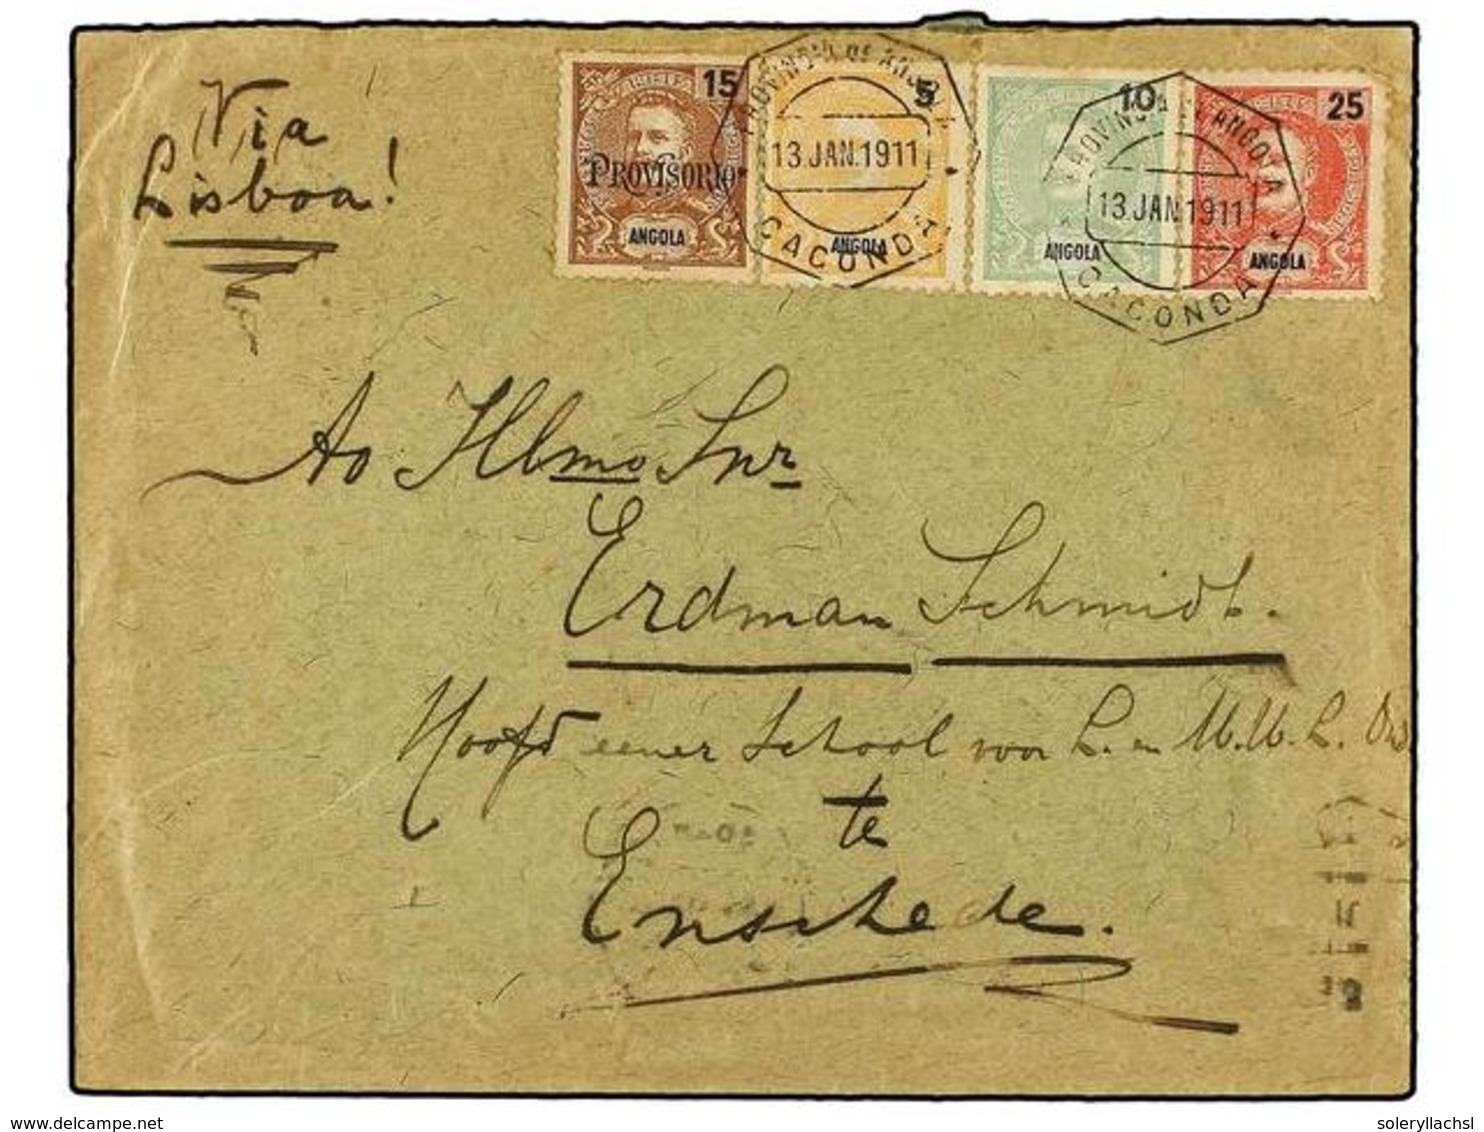 Via
Lisboa!
15 PROVISORIO ANGOLA
5 ANGOLA
10 ANGOLA
25 ANGOLA
PROVINCIA DE ANGOLA
13 JAN.1911
CACONDA
PROVINCIA DE ANGOLA
13 JAN.1911
CACONDA
Ao Illmo Snr
Erdman Schmidt.
Hoofd eener School voor L. en M.U.L.
te
Enschede.
www.delcampe.net
soleryllachsl